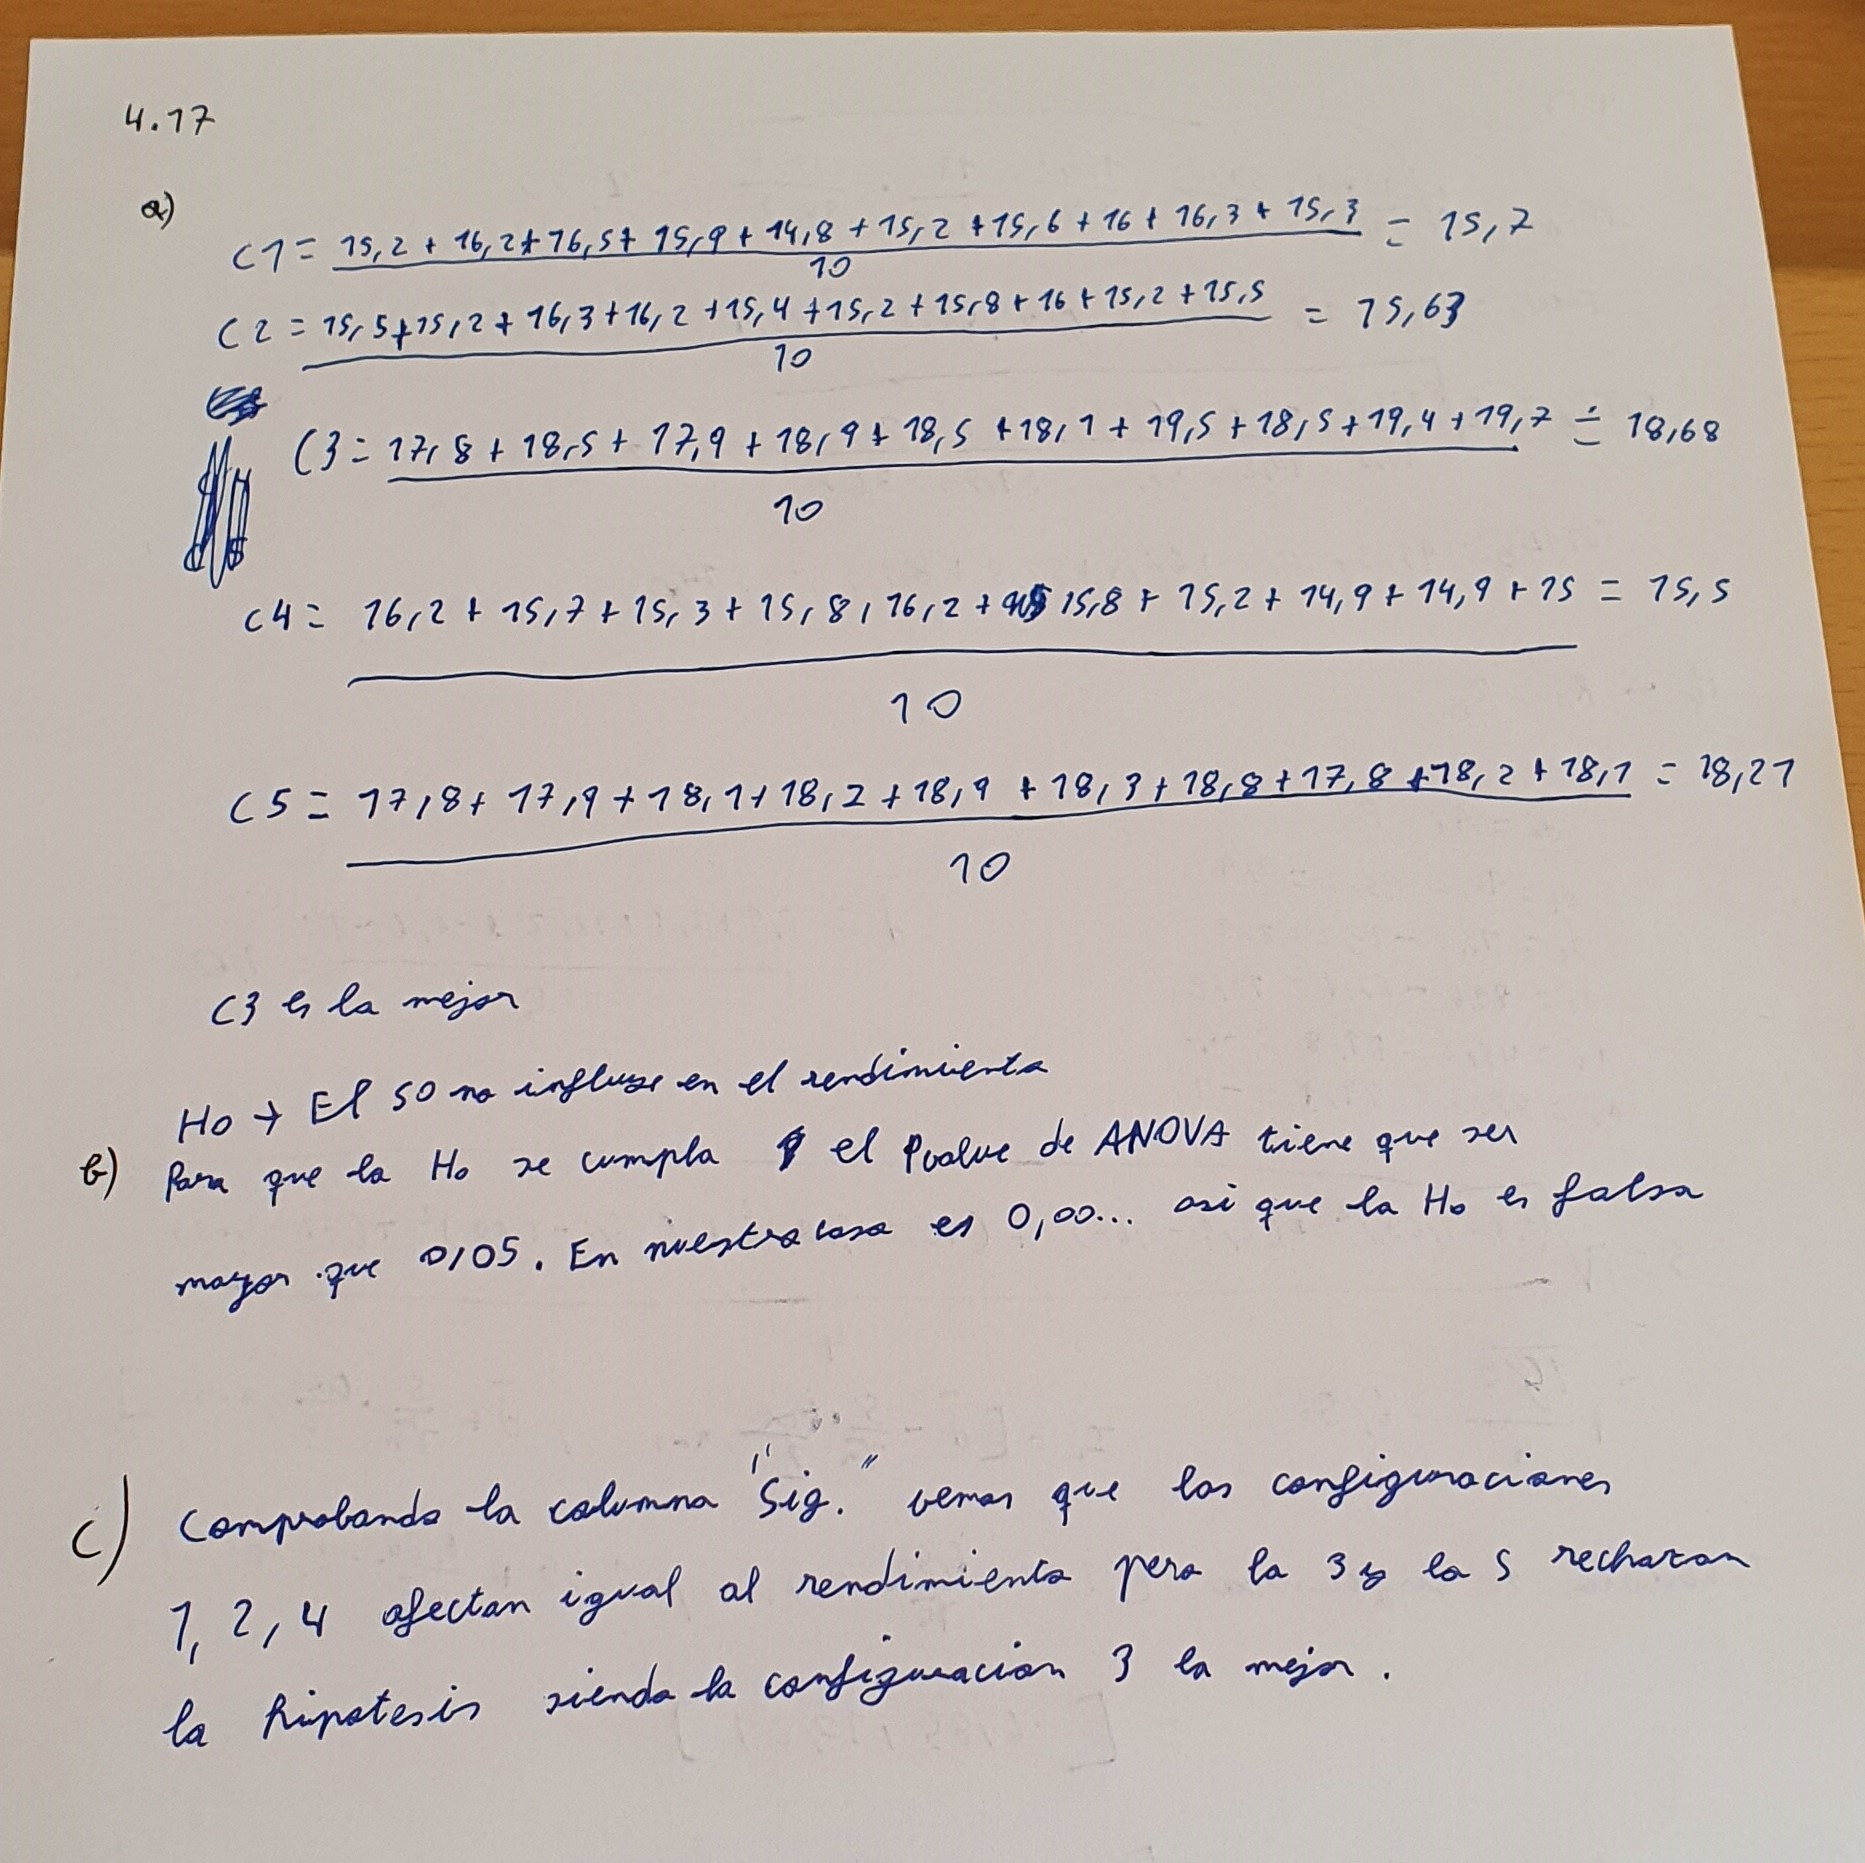 4.17
a)
C1 = 15,2 + 16,2 + 16,5 + 15,9 + 14,8 + 15,2 + 15,6 + 16 + 16,3 + 15,3 = 15,7
10
C2 = 15,5 + 15,2 + 16,3 + 16,2 + 15,4 + 15,2 + 15,8 + 16 + 15,2 + 15,5 = 15,63
10
C3 = 17,8 + 18,5 + 17,9 + 18,9 + 18,5 + 18,1 + 19,5 + 18,5 + 19,4 + 19,7 = 18,68
10
C4 = 16,2 + 15,7 + 15,3 + 15,8, 16,2 + 15,8 + 15,2 + 14,9 + 14,9 + 15 = 15,5
10
C5 = 17,8 + 17,9 + 18,1 + 18,2 + 18,9 + 18,3 + 18,8 + 17,8 + 18,2 + 18,1 = 18,21
10
C3 es la mejor
Ho → El SO no influye en el rendimiento
b) Para que la Ho se cumpla el Pvalue de ANOVA tiene que ser
mayor que 0,05. En nuestro caso es 0,00... asi que la Ho es falsa
c) Comprobando la columna "Sig." vemos que las configuraciones
1, 2, 4 afectan igual al rendimiento pero la 3 y la 5 rechazan
la hipotesis siendo la configuracion 3 la mejor.